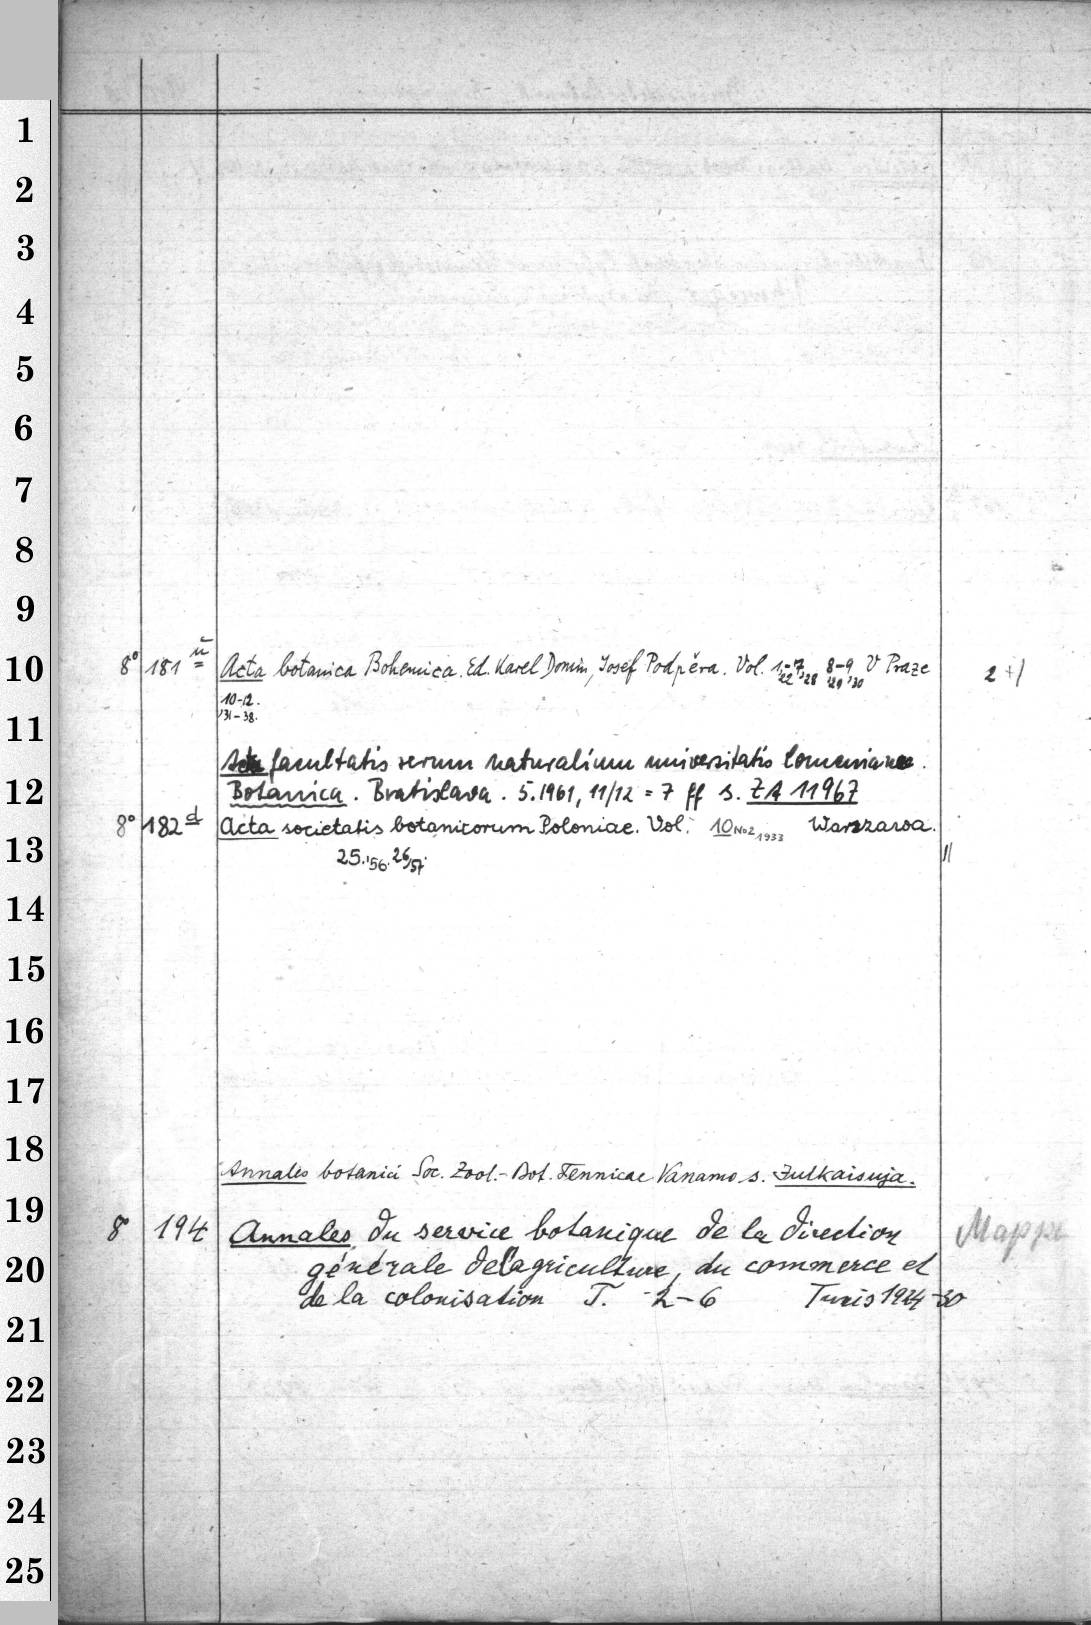 1
2
3
4
5
6
7
8
9
10
8° 181 ü Acta botanica Bohemica. Ed. Karel Domin, Josef Podpěra. Vol. 1–7, 8–9 V Praze 2 +/
'22 '28 '29 '30
10–12.
'31–38.
11
Acta facultatis rerum naturalium universitatis Comenianae.
12
Botanica. Bratislava. 5.1961, 11/12 = 7 ff s. ZA 11967
8° 182 d Acta societatis botanicorum Poloniae. Vol. 10 No2 1933 Warszawa.
13
25. '56. 26/57. ||
14
15
16
17
18
Annales botanici Soc. Zool.-Bot. Fennicae Vanamo s. Julkaisuja.
19
8 194 Annales du service botanique de la direction Mappe
20
générale de l'agriculture, du commerce et
de la colonisation T. 2–6 Tunis 1924–30
21
22
23
24
25